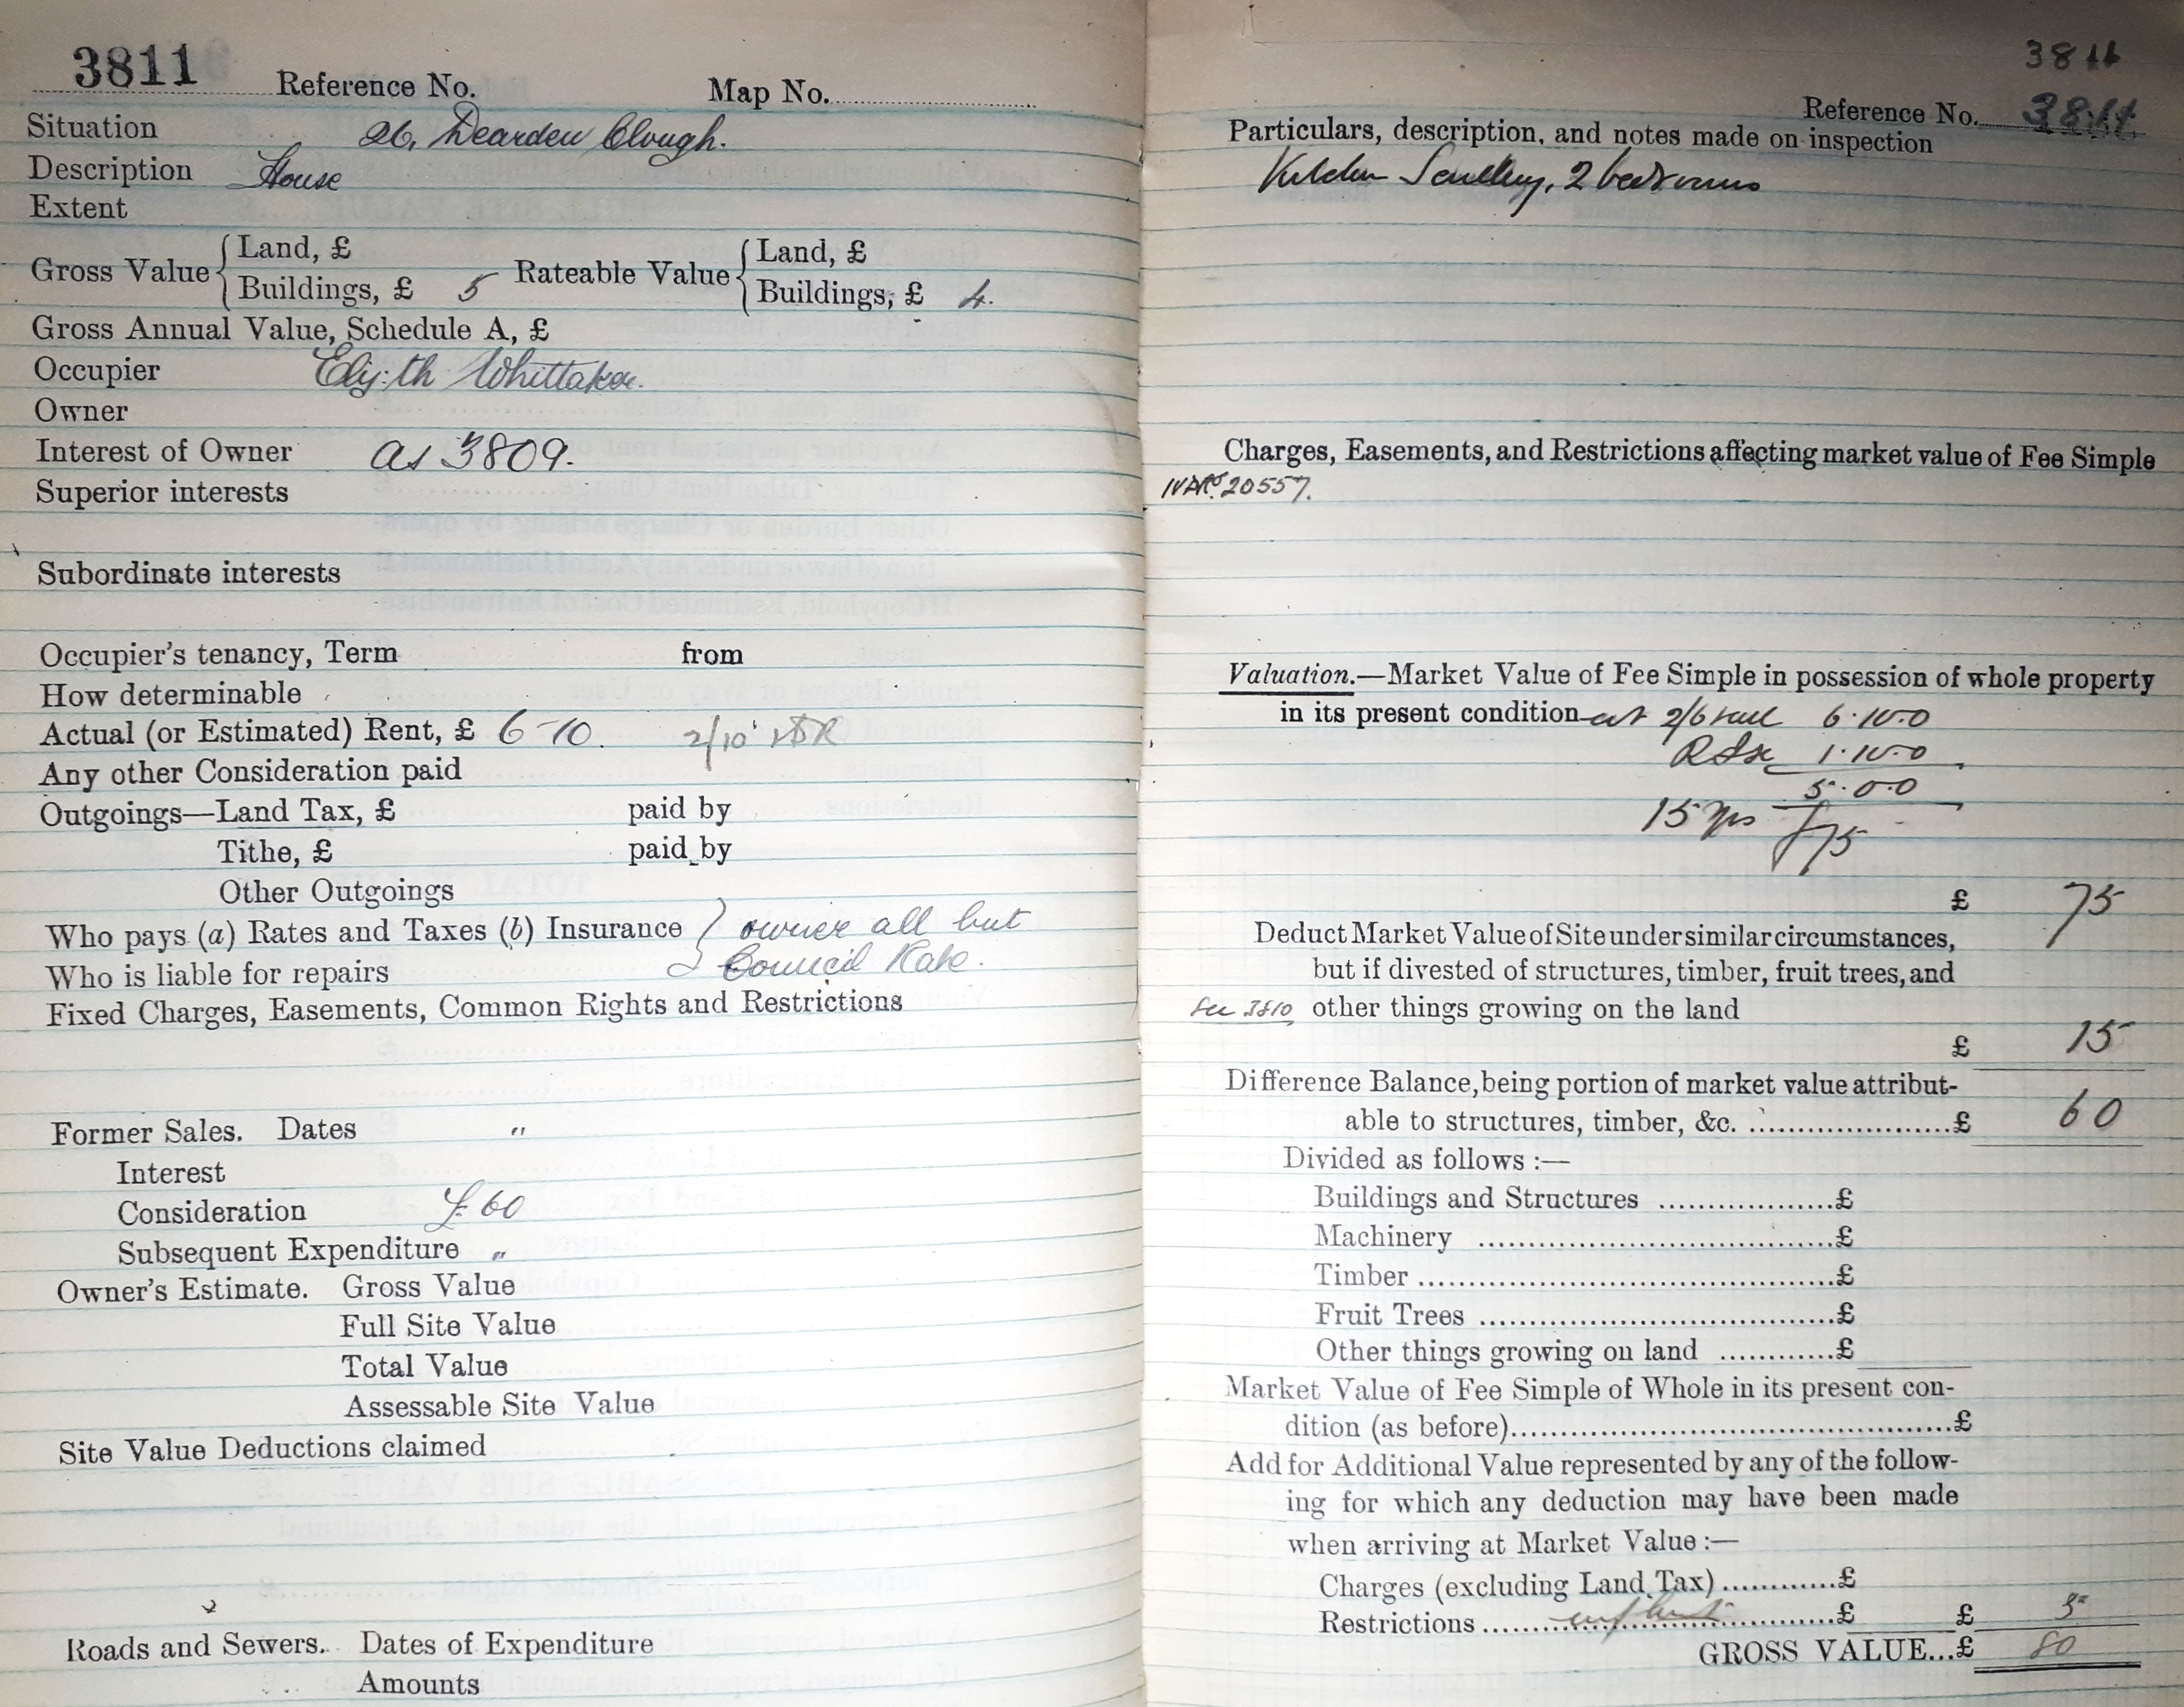 3811 Reference No. Map No.
Situation 26, Dearden Clough.
Description House
Extent
Gross Value { Land, £
Buildings, £ 5
Rateable Value { Land, £
Buildings, £ 4.
Gross Annual Value, Schedule A, £
Occupier Eliz:th Whittaker.
Owner
Interest of Owner as 3809.
Superior interests
Subordinate interests
Occupier's tenancy, Term from
How determinable
Actual (or Estimated) Rent, £ 6-10. 2/10
Any other Consideration paid
Outgoings—Land Tax, £ paid by
Tithe, £ paid by
Other Outgoings
Who pays (a) Rates and Taxes (b) Insurance } owner all but
Who is liable for repairs Council Rate.
Fixed Charges, Easements, Common Rights and Restrictions
Former Sales. Dates "
Interest
Consideration £60
Subsequent Expenditure "
Owner's Estimate. Gross Value
Full Site Value
Total Value
Assessable Site Value
Site Value Deductions claimed
Roads and Sewers. Dates of Expenditure
Amounts
3811
Reference No. 3811
Particulars, description, and notes made on inspection
Kitchen Scullery, 2 bedrooms
Charges, Easements, and Restrictions affecting market value of Fee Simple
20557.
Valuation.—Market Value of Fee Simple in possession of whole property
in its present condition at 2/6 6.10.0
1.10.0
5.0.0
15 yrs £75
£ 75
Deduct Market Value of Site under similar circumstances,
but if divested of structures, timber, fruit trees, and
See 3810 other things growing on the land
£ 15
Difference Balance, being portion of market value attribut-
able to structures, timber, &c. £ 60
Divided as follows :—
Buildings and Structures £
Machinery £
Timber £
Fruit Trees £
Other things growing on land £
Market Value of Fee Simple of Whole in its present con-
dition (as before) £
Add for Additional Value represented by any of the follow-
ing for which any deduction may have been made
when arriving at Market Value :—
Charges (excluding Land Tax) £
Restrictions £ £ 5
GROSS VALUE...£ 80